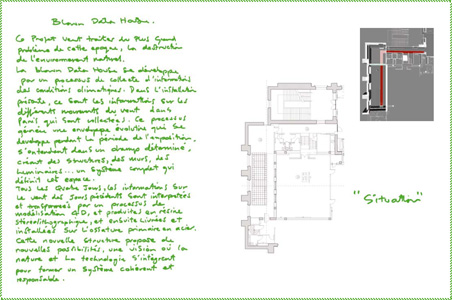 Blown Data House.
Ce Projet Veut traiter du Plus Grand
problème de cette epoque, la destruction
de l'environnement naturel.
La blown Data House se développe
par un processus de collecte d'informations
des conditions climatiques. Dans l'installation
présente, ce sont les informations sur les
différents mouvements du vent dans
Paris qui sont collectées. Ce processus
génère une enveloppe évolutive qui se
développe pendant la période de l'exposition,
s'entendant dans un champ déterminé,
créant des structures, des murs, des
luminaires... un système complet qui
définit cet espace.
Tous les quatre jours, les informations sur
le vent des jours précédents sont interprétés
et transposées par un processus de
modélisation, et produites en résine
stéréolithographique, et ensuite livrées et
installées sur l'ossature primaire en acier.
Cette nouvelle structure propose de
nouvelles possibilités, une vision où la
nature et la technologie s'intègrent
pour former un système cohérent et
responsable.
"Situation"